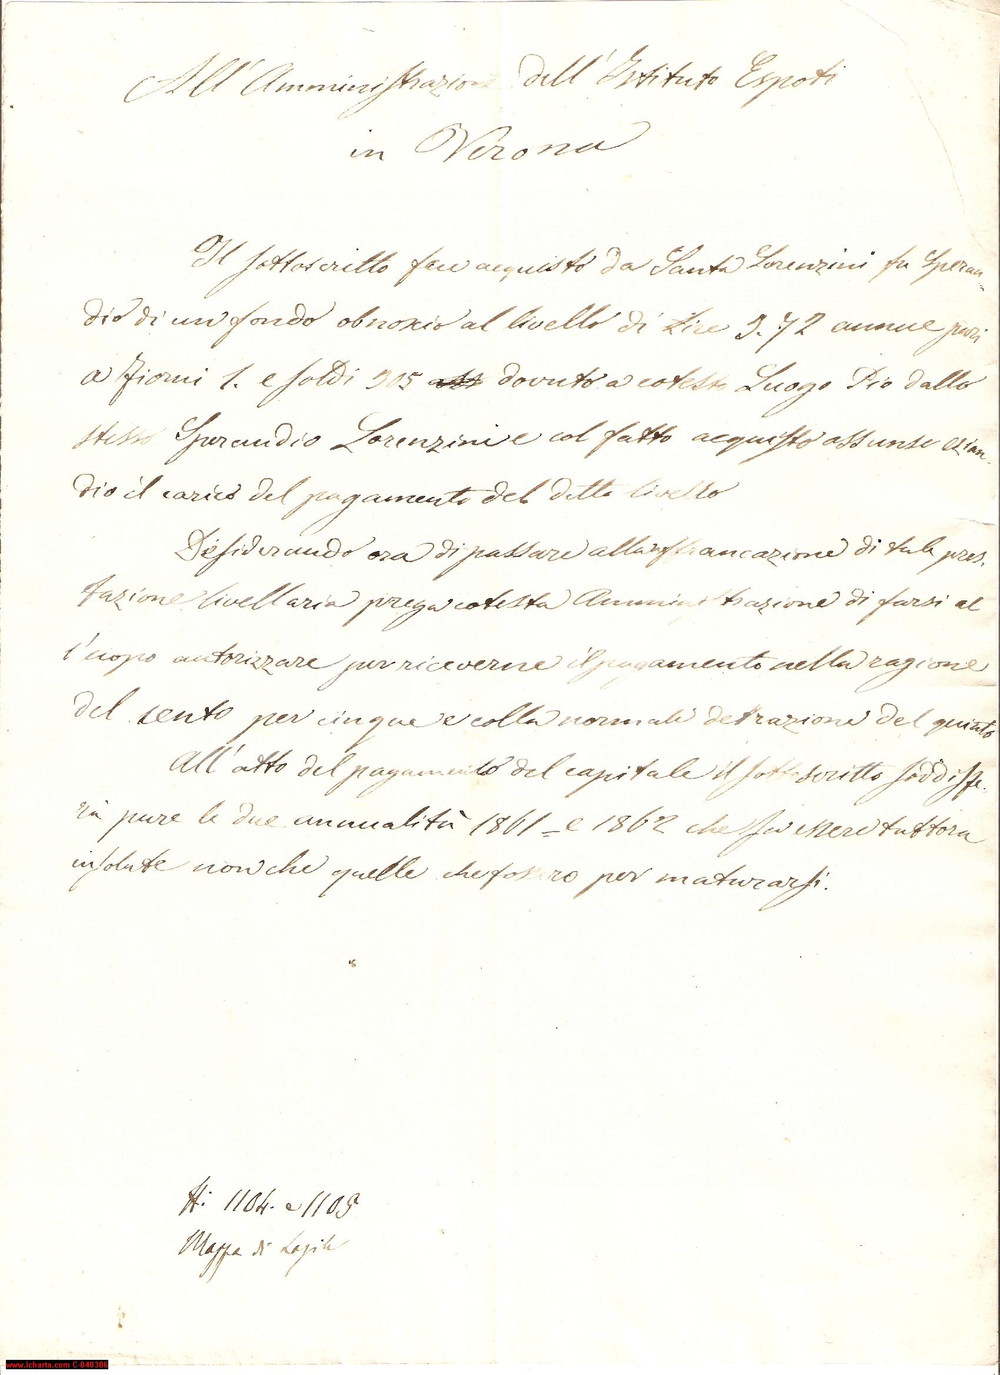 All' Amministrazione dell' Istituto Espoti
in Verona
Il sottoscritto fece acquisto da Santa Lorenzini fu Speran-
dio di un fondo obnoxio al livello di Lire 3.72 annue pari
a Fiorni 1. e soldi 305 dovuto a cotesto Luogo Pio dallo
stesso Sperandio Lorenzini e col fatto acquisto assunse ezian-
dio il carico del pagamento del detto livello
Desiderando ora di passare alla affrancazione di tale pres-
tazione livellaria prega cotesta Amministrazione di farsi al
l'uopo autorizzare per riceverne il pagamento nella ragione
del cento per cinque e colla normale detrazione del quinto
All' atto del pagamento del capitale il sottoscritto soddisfe-
rà pure le due annualità 1861 = e 1862 che sa essere tuttora
insolute non che quelle che fossero per maturarsi.
N: 1104. e 1105
Mappa di Lazise
www.icharta.com C-040306